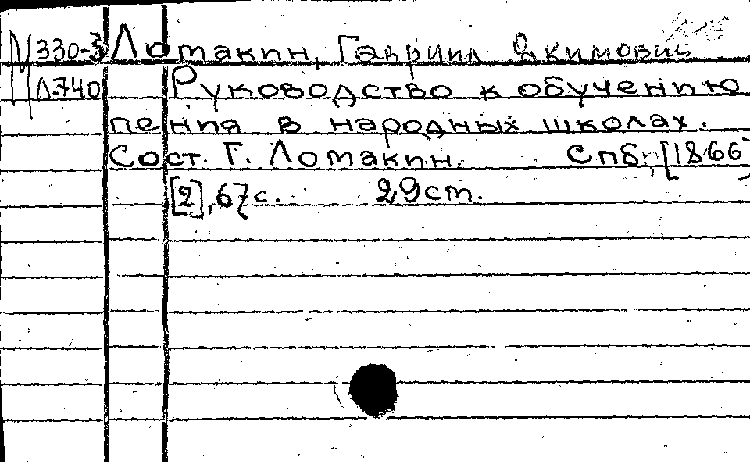 М 330-3 Ломакин, Гавриил Якимович
Л740 Руководство к обучению
пения в народных школах.
Сост. Г. Ломакин. Спб., [1866]
[2], 67 с. 29 см.